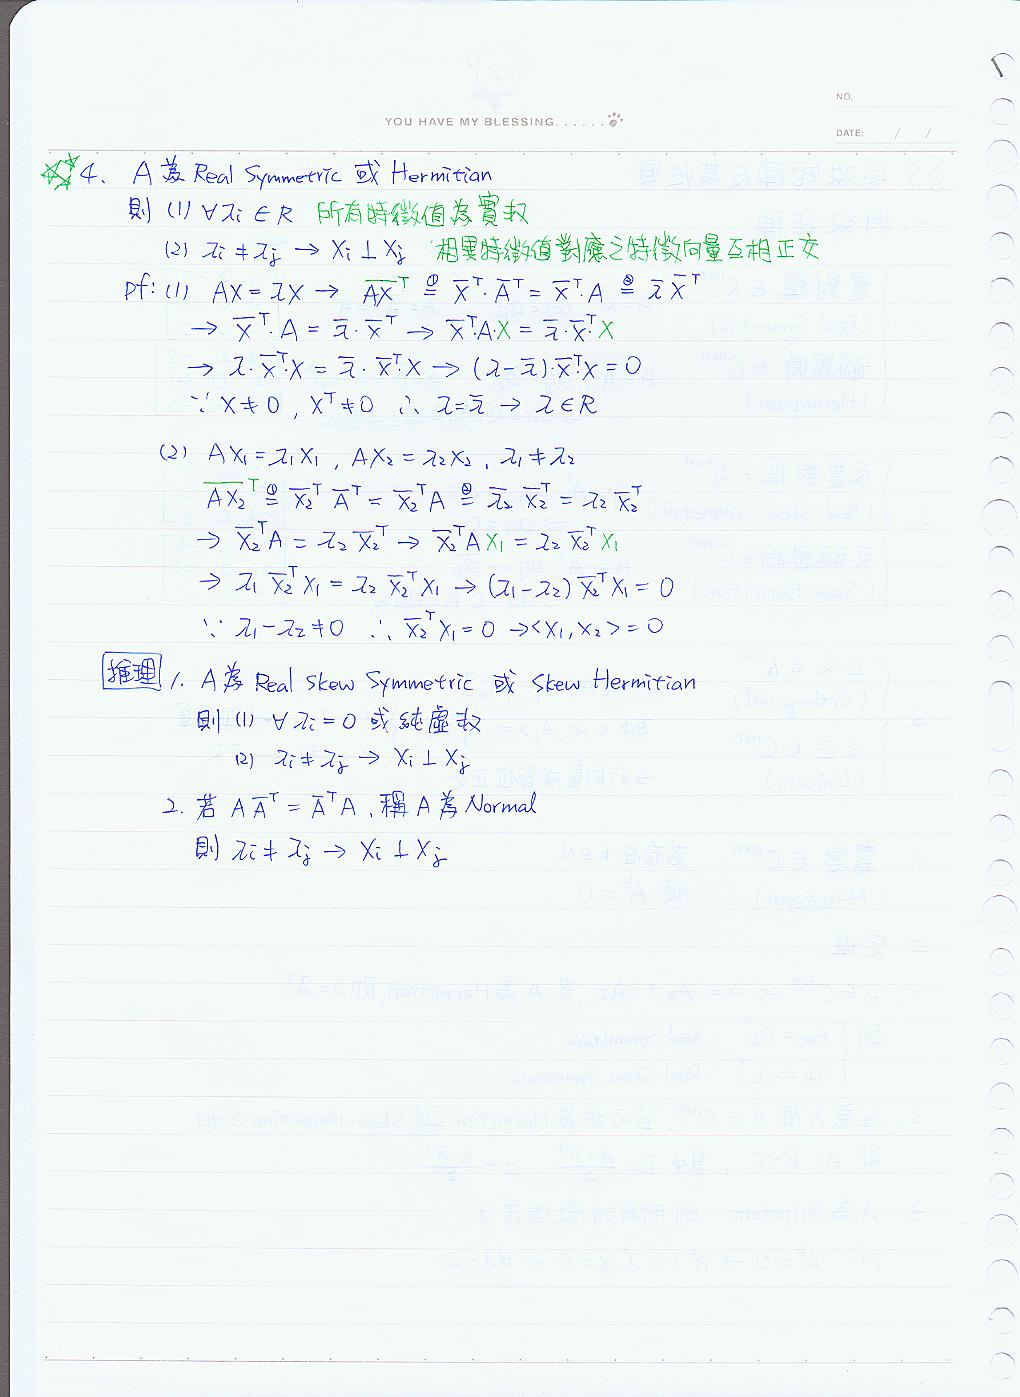 YOU HAVE MY BLESSING......
NO.
DATE: / /
4. A為 Real Symmetric 或 Hermitian
則 (1) ∀λi ∈ R 所有特徵值為實数
(2) λi ≠ λj → Xi ⊥ Xj 相異特徵值對應之特徵向量互相正交
pf: (1) AX = λX → A̅X̅ᵀ ≝① X̅ᵀ·A̅ᵀ = X̅ᵀ·A ≝② λ̅ X̅ᵀ
→ X̅ᵀ·A = λ̅·X̅ᵀ → X̅ᵀA·X = λ̅·X̅ᵀ·X
→ λ·X̅ᵀ·X = λ̅·X̅ᵀ·X → (λ-λ̅)·X̅ᵀ·X = 0
∵ X ≠ 0, Xᵀ ≠ 0 ∴ λ = λ̅ → λ ∈ R
(2) AX₁ = λ₁X₁, AX₂ = λ₂X₂, λ₁ ≠ λ₂
A̅X̅₂ᵀ ≝① X̅₂ᵀ A̅ᵀ = X̅₂ᵀ A ≝② λ̅₂ X̅₂ᵀ = λ₂ X̅₂ᵀ
→ X̅₂ᵀA = λ₂ X̅₂ᵀ → X̅₂ᵀA X₁ = λ₂ X̅₂ᵀ X₁
→ λ₁ X̅₂ᵀX₁ = λ₂ X̅₂ᵀX₁ → (λ₁-λ₂) X̅₂ᵀX₁ = 0
∵ λ₁-λ₂ ≠ 0 ∴ X̅₂ᵀX₁ = 0 → <X₁, X₂> = 0
推理 1. A為 Real Skew Symmetric 或 Skew Hermitian
則 (1) ∀λi = 0 或純虛数
(2) λi ≠ λj → Xi ⊥ Xj
2. 若 AA̅ᵀ = A̅ᵀA, 稱A為Normal
則 λi ≠ λj → Xi ⊥ Xj